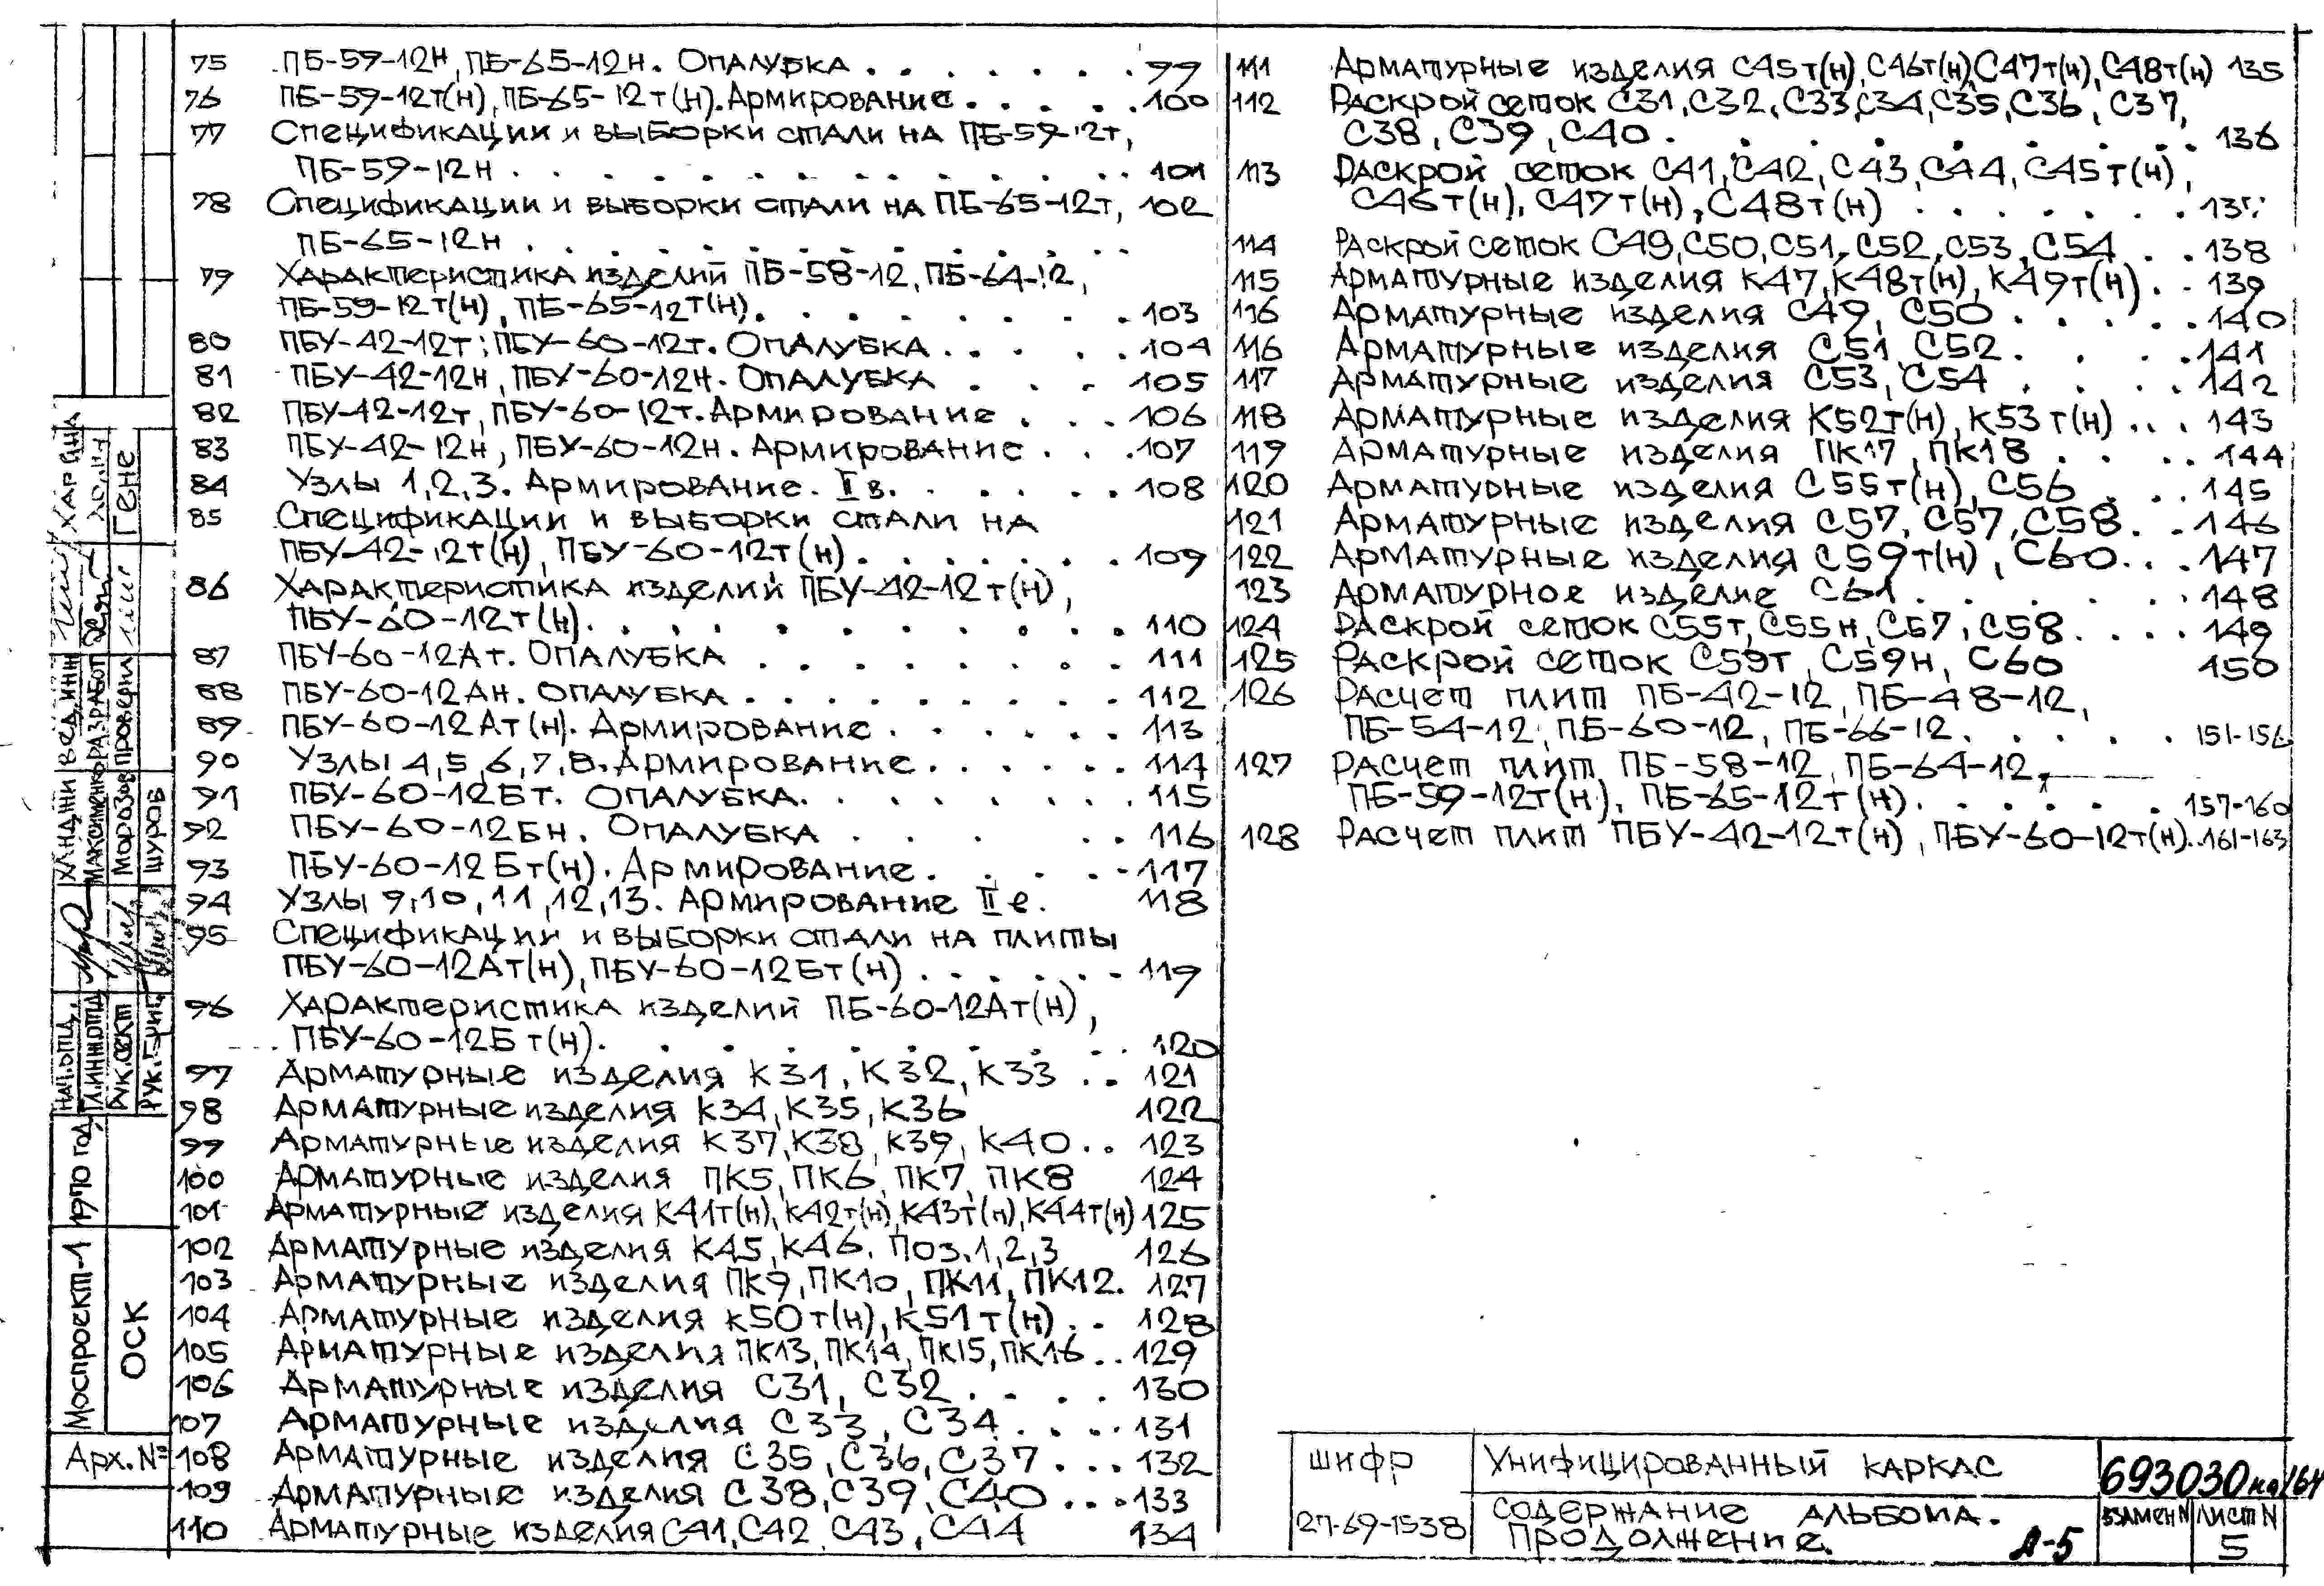 75 ПБ-59-12Н, ПБ-65-12Н. Опалубка . . . . . . . 99
76 ПБ-59-12т(н), ПБ-65-12т(н). Армирование . . . . . 100
77 Спецификации и выборки стали на ПБ-59-12т,
ПБ-59-12Н . . . . . . . . . . . . 101
78 Спецификации и выборки стали на ПБ-65-12т, 102
ПБ-65-12Н . . . . . . . . . . .
79 Характеристика изделий ПБ-58-12, ПБ-64-12,
ПБ-59-12т(н), ПБ-65-12т(н) . . . . . . . . 103
80 ПБУ-42-12т; ПБУ-60-12т. Опалубка . . . . . 104
81 ПБУ-42-12Н, ПБУ-60-12Н. Опалубка . . . 105
82 ПБУ-42-12т, ПБУ-60-12т. Армирование . . . 106
83 ПБУ-42-12н, ПБУ-60-12н. Армирование . . . 107
84 Узлы 1,2,3. Армирование. Iв. . . . . . 108
85 Спецификации и выборки стали на
ПБУ-42-12т(н), ПБУ-60-12т(н) . . . . . . . 109
86 Характеристика изделий ПБУ-42-12т(н),
ПБУ-60-12т(н) . . . . . . . . . . . 110
87 ПБУ-60-12Ат. Опалубка . . . . . . . . 111
88 ПБУ-60-12Ан. Опалубка . . . . . . . . 112
89 ПБУ-60-12Ат(н). Армирование . . . . . . 113
90 Узлы 4,5,6,7,8. Армирование . . . . . . 114
91 ПБУ-60-12Бт. Опалубка . . . . . . . 115
92 ПБУ-60-12Бн. Опалубка . . . . . 116
93 ПБУ-60-12Бт(н). Армирование . . . . . 117
94 Узлы 9,10,11,12,13. Армирование IIв. 118
95 Спецификации и выборки стали на плиты
ПБУ-60-12Ат(н), ПБУ-60-12Бт(н) . . . . . . 119
96 Характеристика изделий ПБ-60-12Ат(н),
ПБУ-60-12Бт(н) . . . . . . . . . 120
97 Арматурные изделия К31, К32, К33 . . 121
98 Арматурные изделия К34, К35, К36 122
99 Арматурные изделия К37, К38, К39, К40 . . 123
100 Арматурные изделия ПК5, ПК6, ПК7, ПК8 124
101 Арматурные изделия К41т(н), К42т(н), К43т(н), К44т(н) 125
102 Арматурные изделия К45, К46. Поз. 1,2,3 126
103 Арматурные изделия ПК9, ПК10, ПК11, ПК12. 127
104 Арматурные изделия К50т(н), К51т(н) . . 128
105 Арматурные изделия ПК13, ПК14, ПК15, ПК16 . . 129
106 Арматурные изделия С31, С32 . . . . 130
107 Арматурные изделия С33, С34 . . . . 131
108 Арматурные изделия С35, С36, С37 . . . 132
109 Арматурные изделия С38, С39, С40 . . . 133
110 Арматурные изделия С41, С42, С43, С44 134
111 Арматурные изделия С45т(н), С46т(н), С47т(н), С48т(н) 135
112 Раскрой сеток С31, С32, С33, С34, С35, С36, С37,
С38, С39, С40 . . . . . . . . . 136
113 Раскрой сеток С41, С42, С43, С44, С45т(н),
С46т(н), С47т(н), С48т(н) . . . . . . . 137
114 Раскрой сеток С49, С50, С51, С52, С53, С54 . . 138
115 Арматурные изделия К47, К48т(н), К49т(н) . . 139
116 Арматурные изделия С49, С50 . . . . . 140
116 Арматурные изделия С51, С52 . . . . 141
117 Арматурные изделия С53, С54 . . . . 142
118 Арматурные изделия К52т(н), К53т(н) . . . 143
119 Арматурные изделия ПК17, ПК18 . . . . 144
120 Арматурные изделия С55т(н), С56 . . . 145
121 Арматурные изделия С57, С57, С58 . . 146
122 Арматурные изделия С59т(н), С60 . . . 147
123 Арматурное изделие С61 . . . . . . 148
124 Раскрой сеток С55т, С55н, С57, С58 . . . . 149
125 Раскрой сеток С59т, С59н, С60 150
126 Расчет плит ПБ-42-12, ПБ-48-12,
ПБ-54-12, ПБ-60-12, ПБ-66-12 . . . . . 151-156
127 Расчет плит ПБ-58-12, ПБ-64-12,
ПБ-59-12т(н), ПБ-65-12т(н) . . . . . . 157-160
128 Расчет плит ПБУ-42-12т(н), ПБУ-60-12т(н) . . 161-163
Шифр
27-69-1538
Унифицированный каркас
Содержание альбома.
Продолжение.
А-5
взамен N
лист N
5
Моспроект-1 1970 год
ОСК
Арх. №
Нач. отд. Ханджи Вед. инж Харина
Гл. инж отд Максименко Разработ
Рук. сект Морозов Проверил Гене
Рук. Шуров